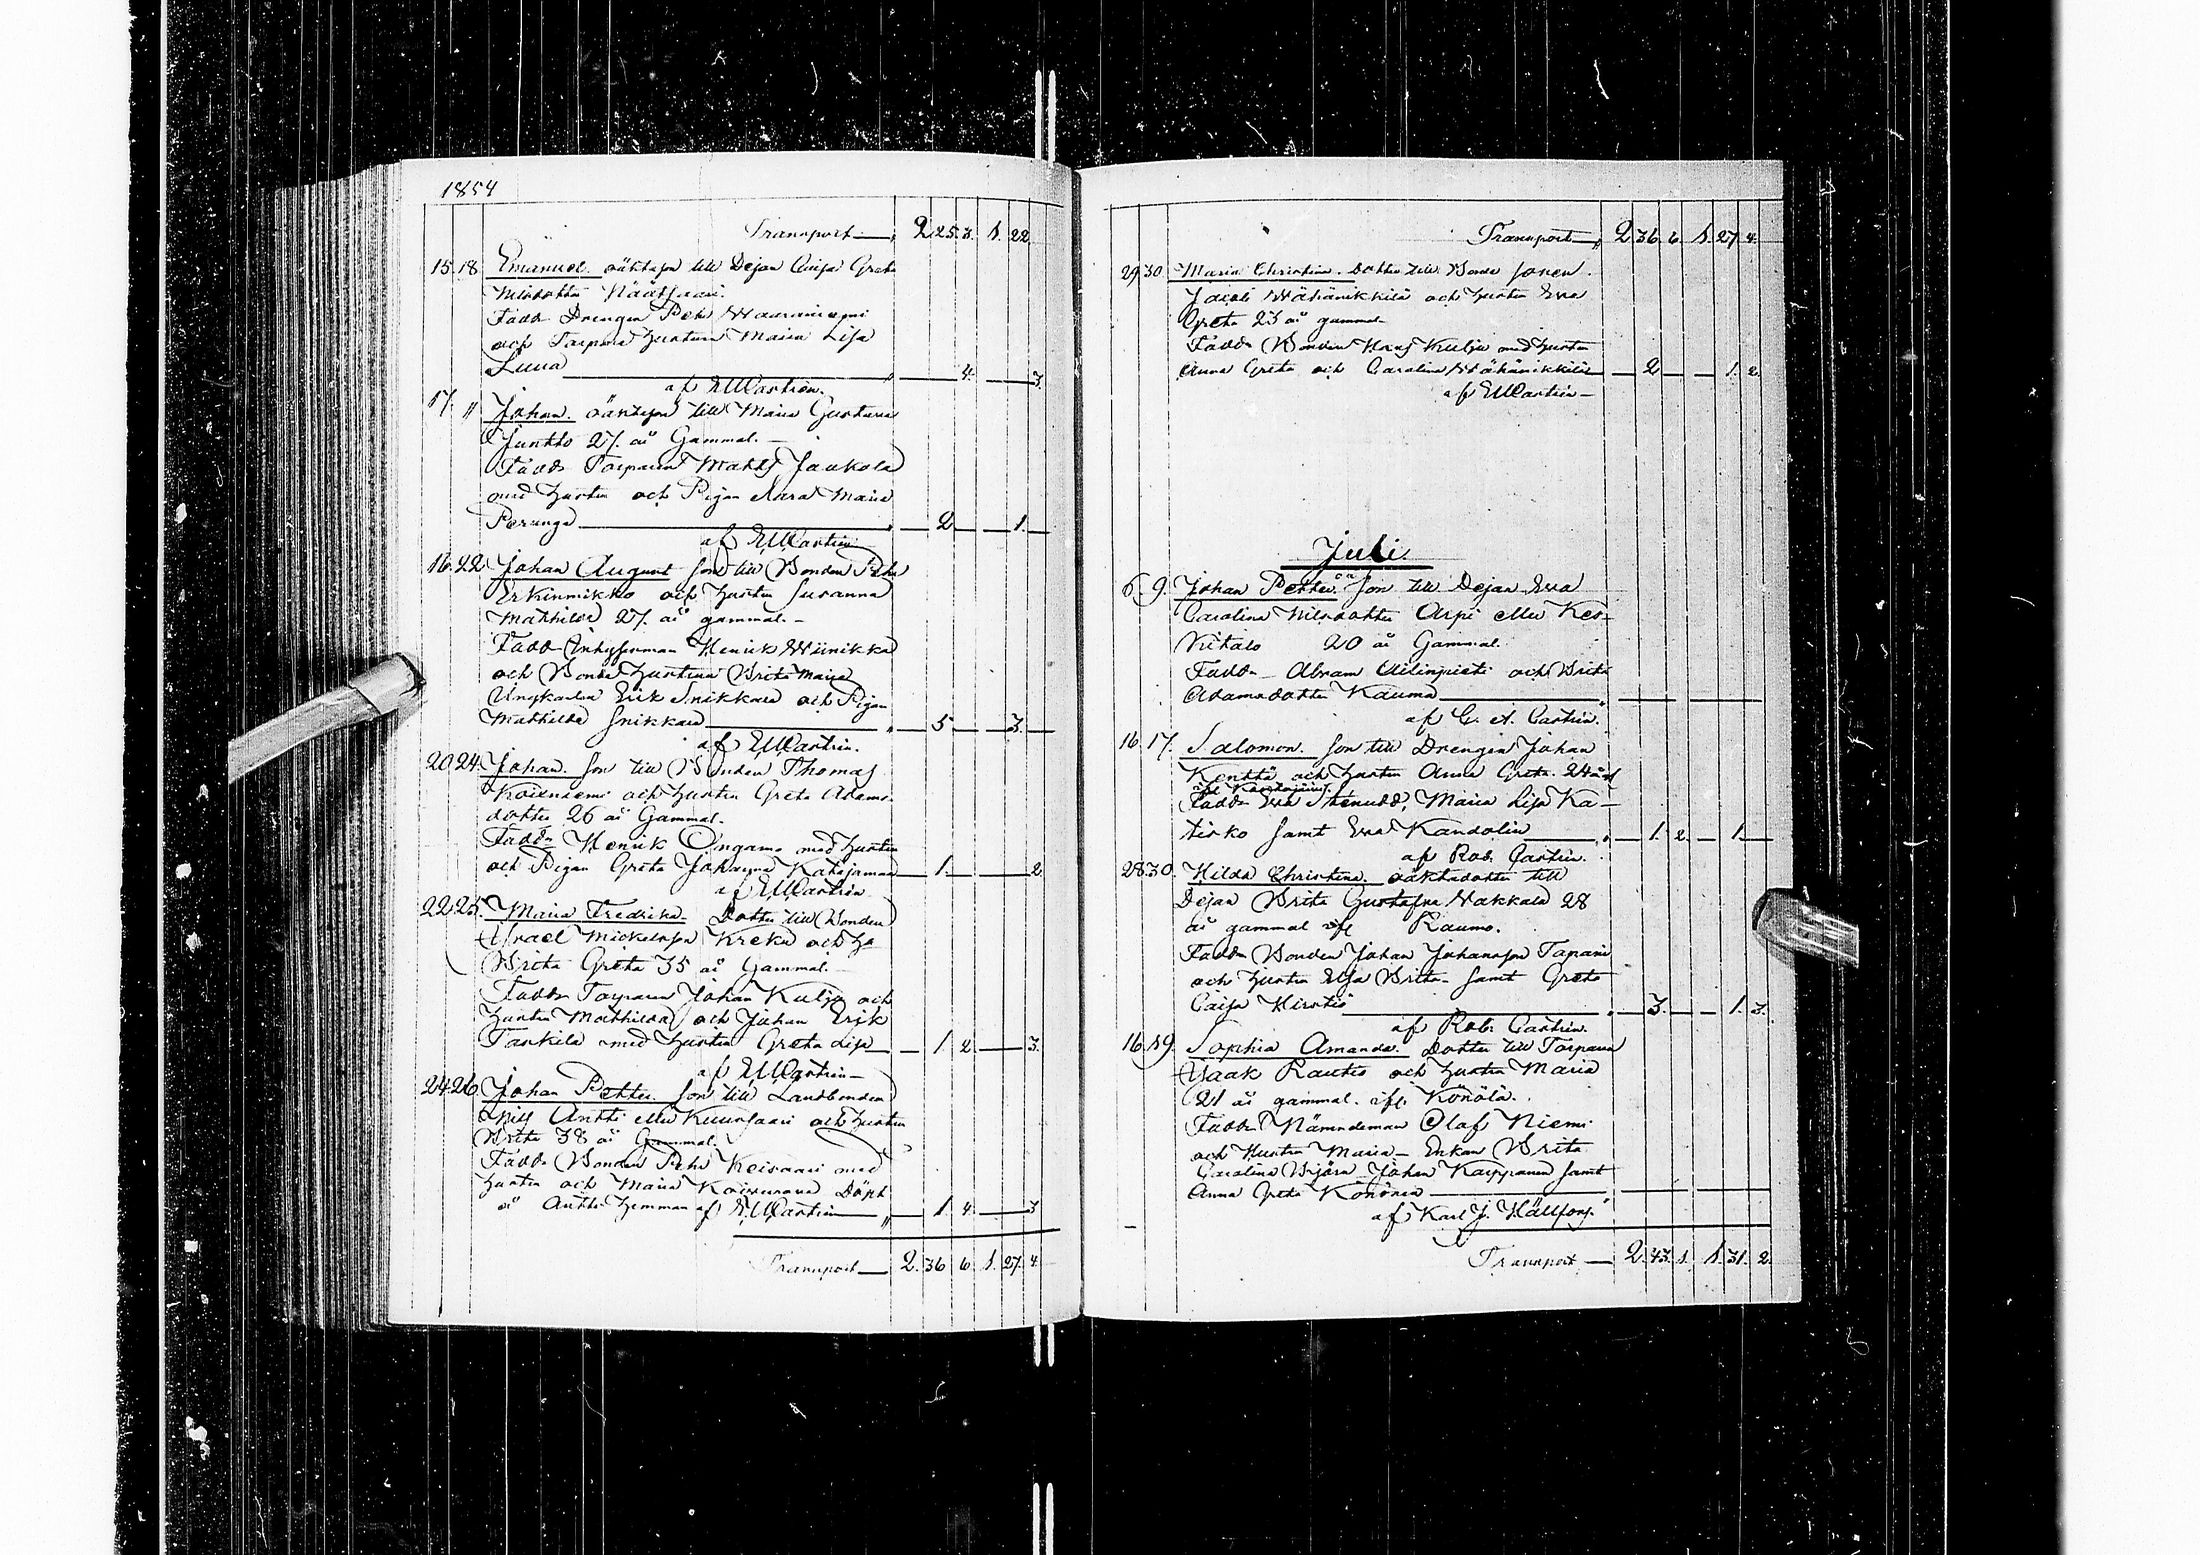 1854
Transport 2. 25. 3. 1. 22.
15. 18. Emanuel. oäkta son till Pejan Caisa Greta
Nilsdotter Näätsaari.
Fadd. Drengen Pehr
och Torpare Hustrun Maria Lisa
Luua 4. 3.
af EWCastrén.
17. " Johan. oäkta son till Maria Gustava
Juntto 27. år Gammal.
Fadd. Torparen Matts Jaukola
med Hustru och Pigan Clara Maria
Perunga 2 1.
af EWCastrén
16. 22. Johan August son till Bonden Pehr
Erkinmikko och Hustru Susanna
Mathilda 27. år gammal.
Fadd. Inhysesman Henrik Wiinikka
och Bonde Hustrun Brita Maria
Ungkarlen Erik Snikkare och Pigan
Mathilda Snikkare 5 3.
af EWCastrén.
20. 24. Johan. son till Bonden Thomas
Koivuniemi och Hustru Greta Adams-
dotter 26 år Gammal.
Fadd. Henrik Ongamo med Hustru
och Pigan Greta Johanna Katajamaa 1. 2
af EWCastrén
22. 25. Maria Fredrika. Dotter till Bonden
Israel Mickelsson Kreku och Hu
Brita Greta 35 år Gammal.
Fadd. Torparen Johan Kulju och
Hustru Mathilda och Johan Erik
Taskila med Hustru Greta Lisa 1. 2. 3.
af EWCastrén
24. 26. Johan Petter. son till Landbonden
Nils Antti eller Kuurssaari och Hustru
Brita 38 år Gammal.
Fadd. Bonden Pehr Keisaari med
Hustru och Maria Döpt
å Antti Hemman af E.WCastrén 1. 4. 3
Transport 2. 36 6. 1. 27. 4.
Transport 2. 36. 6. 1. 27. 4.
29. 30. Maria Christina. Dotter till Bonde sonen
Jacob Wähänikkilä och Hustru Eva
Greta 23 år gammal
Fadd. Bonden Hans Kulju med Hustru
Anna Greta och Carolina Wähänikkilä 2 1. 2.
af EWCastrén
Juli.
6. 9. Johan Petter. son till Pejan Eva
Carolina Nilsdotter Arpi eller Kes-
kitalo 20 år Gammal.
Fadd. Abram Ailinpieti och Brita
Adamsdotter Kauma
af C. A. Castrén.
16. 17. Salomon. son till Drengen Johan
Kenttä och Hustru Anna Greta. 24 år
Fadd. Eva Stenudd, Maria Lisa Ka-
tisko samt Eva Kandolin 1. 2. 1.
af Rob. Castrén.
28. 30. Hilda Christina. oäkta dotter till
Pejan Brita Gustafva Hakkala 28
år gammal ifr Kaumo.
Fadd. Bonden Johan Johansson Tapani
och Hustru Elsa Brita samt Greta
Caisa Hirstiö 3. 1. 3.
af Rob. Castrén.
16. 19. Sophia Amanda. Dotter till Torparen
Isaak Rautio och Hustru Maria
21 år gammal. ifr. Könölä.
Fadd. Nämndeman Olof Niemi
och Hustru Maria Enkan Brita
Carolina Björn Johan Karppanen samt
Anna Greta Könönen
af Karl J. Hällfors.
Transport 2. 43. 1. 1. 31. 2.